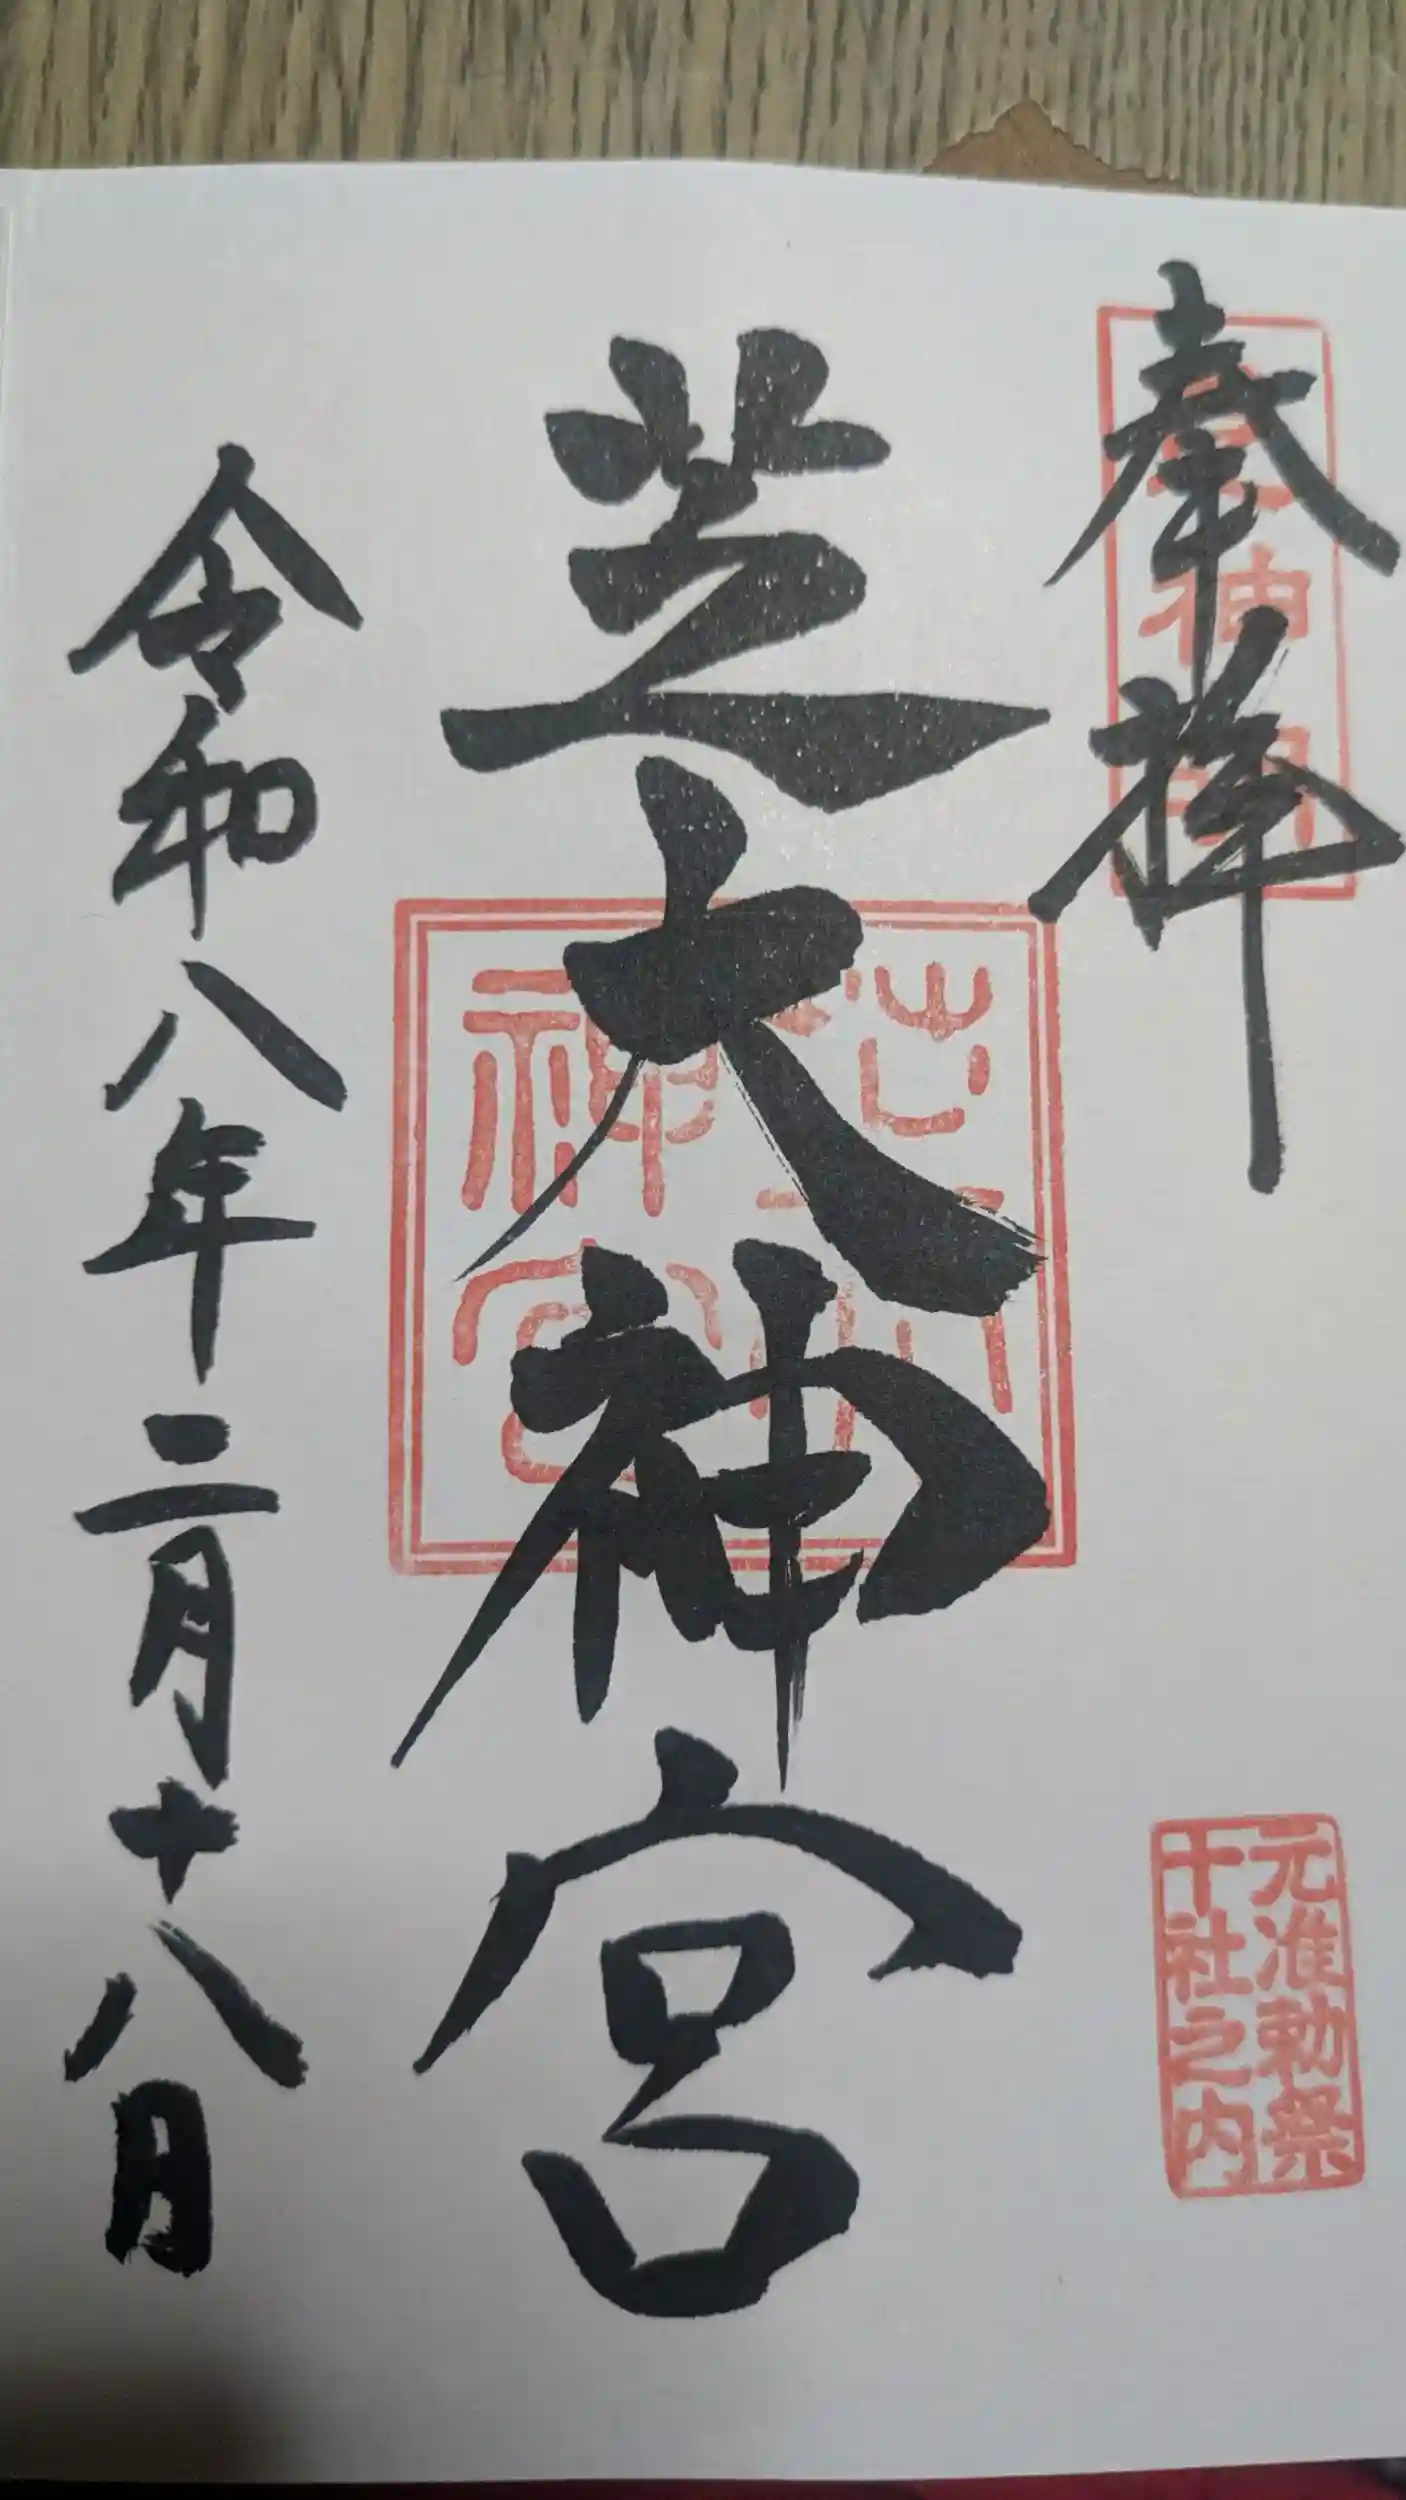 奉拝
元准勅祭
十社之内
芝大神宮
芝大
神宮
令和八年二月十八日